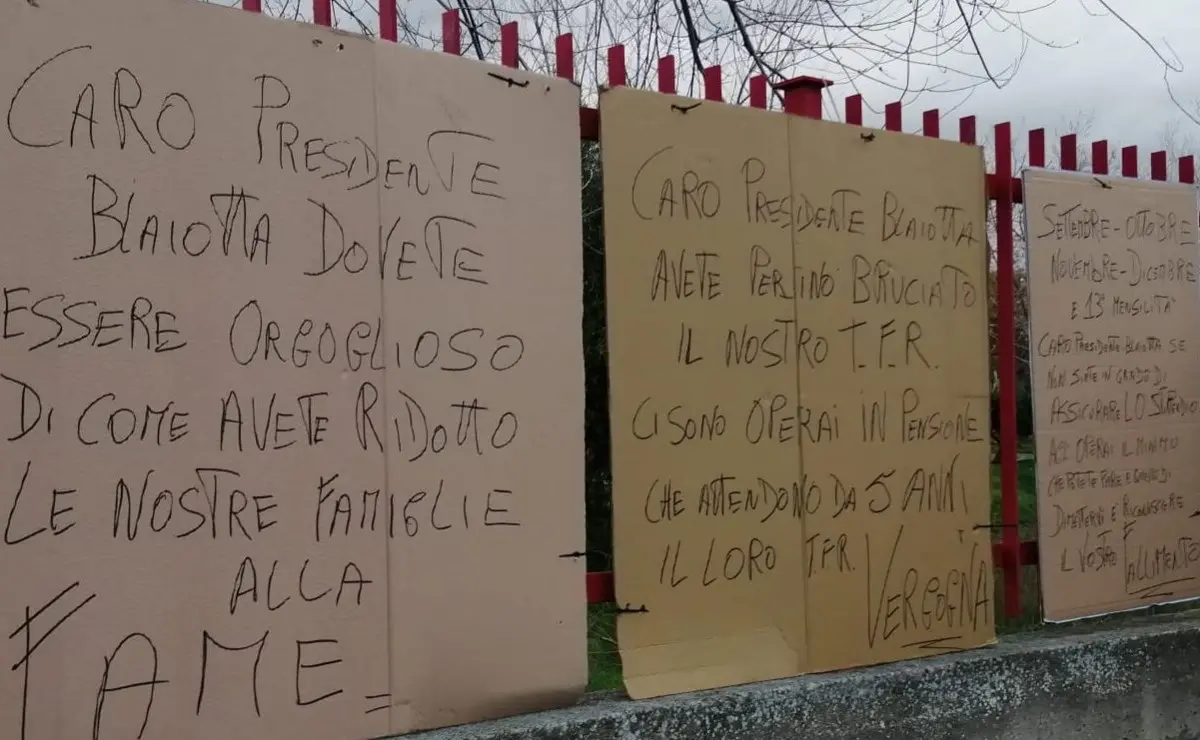 CARO PRESIDENTE
BLAIOTTA DOVETE
ESSERE ORGOGLIOSO
DI COME AVETE RIDOTTO
LE NOSTRE FAMIGLIE
ALLA
FAME
CARO PRESIDENTE BLAIOTTA
AVETE PERSINO BRUCIATO
IL NOSTRO T.F.R.
CI SONO OPERAI IN PENSIONE
CHE ATTENDONO DA 5 ANNI
IL LORO T.F.R. VERGOGNA
SETTEMBRE - OTTOBRE
NOVEMBRE - DICEMBRE
E 13ª MENSILITA'
CARO PRESIDENTE BLAIOTTA SE
NON SIETE IN GRADO DI
ASSICURARE LO STIPENDIO
OPERAI IL MINIMO
CHE POTETE FARE E QUELLO DI
DIMETTERVI E RICONOSCERE
IL VOSTRO FALLIMENTO